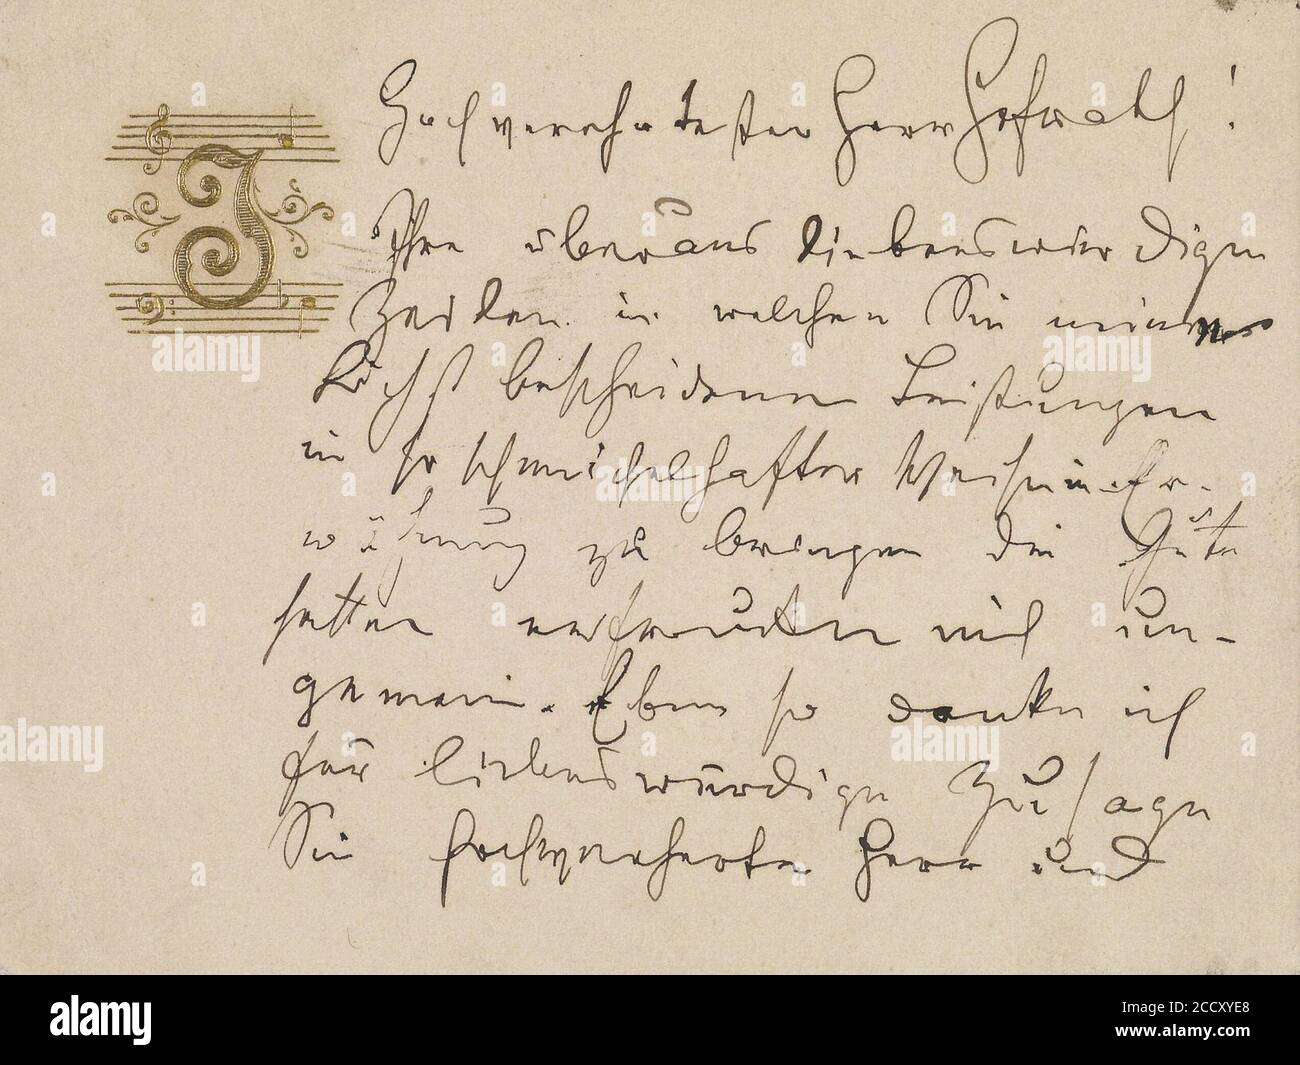 Hochverehrtester Herr Hofrath!
Ihre überaus liebenswürdigen
Zeilen in welchen Sie meine
höchst bescheidenen Leistungen
in so schmeichelhafter Weise in Er-
wähnung zu bringen die Güte
hatten erfreuten mich un-
gemein. Eben so danke ich
für liebenswürdige Zusage
Sie hochverehrter Herr und
J
alamy
Image ID: 2CCXYE8
www.alamy.com